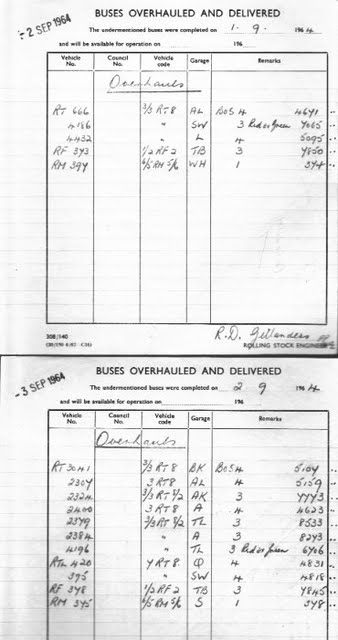 - 2 SEP 1964
BUSES OVERHAULED AND DELIVERED
The undermentioned buses were completed on 1 - 9 - 1964
and will be available for operation on 196
Vehicle No. Council No. Vehicle code Garage Remarks
Overhauls
RT 666 3/3 RT8 AL BOS 4 4671
4186 " SW 3 Red ex Green 7065
4432 " L 4 5095
RF 373 1/2 RF2 TB 3 7850
RM 394 6/5 RM 5/6 WH 1 374
308/140
R.D. ROLLING STOCK ENGINEER
- 3 SEP 1964
BUSES OVERHAULED AND DELIVERED
The undermentioned buses were completed on 2 9 1964
and will be available for operation on 196
Vehicle No. Council No. Vehicle code Garage Remarks
Overhauls
RT 3041 3/3 RT8 BK BOS 4 5104
2307 3 RT8 AL 4 5159
2324 3/3 RT 8/2 AK 3 7773
2400 3 RT8 A 4 4623
2379 3/3 RT 8/2 TL 3 8533
2384 " A 3 8243
4196 " TL 3 Red ex Green 6706
RTL 420 7 RT8 Q 4 4831
395 " SW 4 4818
RF 378 1/2 RF2 TB 3 7845
RM 375 6/5 RM 5/6 S 1 378